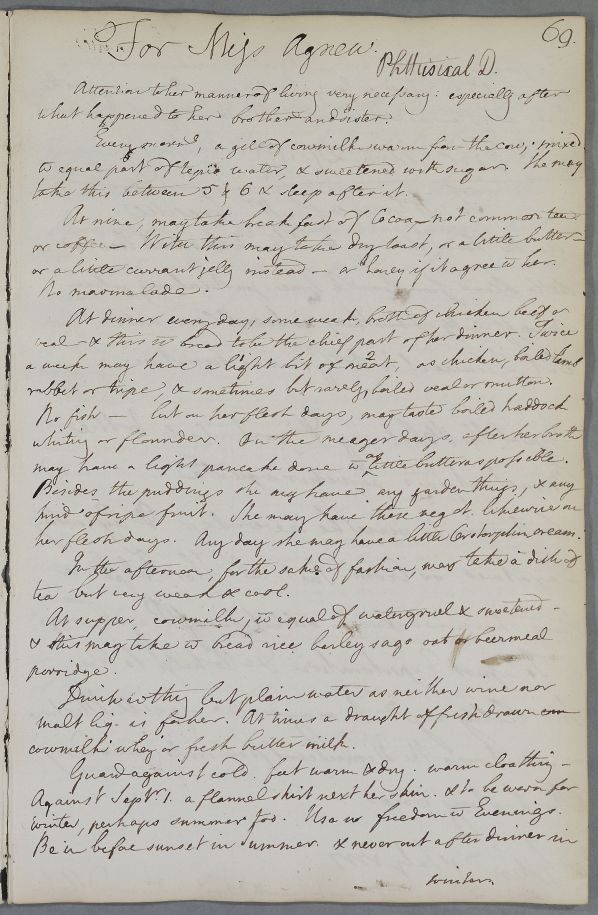 69.
For Miss Agnew.
Phthisical D.
Attention to her manner of living very necessary: especially after
what happened to her brother and sister.
Every morng, a gill of cowmilk warm from the cow, mixed
to equal part of tepid water, & sweetened with sugar. She may
take this between 5 & 6 & sleep after it.
At nine, may take breakfast of Cocoa, not common tea
or coffee – With this may take dry toast, or a little butter –
or a little currant jelly instead – or honey if it agree to her.
No marmalade.
At dinner every day, some weak broth of chicken beef or
veal – & this w bread to be the chief part of her dinner. Twice
a week may have a light bit of meat, as chicken, boiled lamb
rabbit or tripe, & sometimes but rarely, boiled veal or mutton.
No fish – but on her flesh days, may taste boiled haddock
whiting or flounder. On the meager days, after her broth
may have a light pancake done w as little butter as possible.
Besides the puddings she may have any garden things, & any
kind of ripe fruit. She may have these veget. likewise on
her flesh days. Any day she may have a little Corstorphin cream.
In the afternoon, for the sake of fashion, may take a dish of
tea but very weak & cool.
At supper, cowmilk, w equal of watergruel & sweetened –
& this may take w bread rice barley sago oat or beermeal
porridge.
Drink nothing but plain water as neither wine nor
malt liq. is for her. At times a draught of fresh drawn
cowmilk whey or fresh butter milk.
Guard against cold. feet warm & dry. warm cloathing –
Against Septr 1. a flannel shirt next her skin. & to be worn for
winter, perhaps summer too. Use no freedom w Evenings.
Be in before sunset in summer. & never out after dinner in
winter.